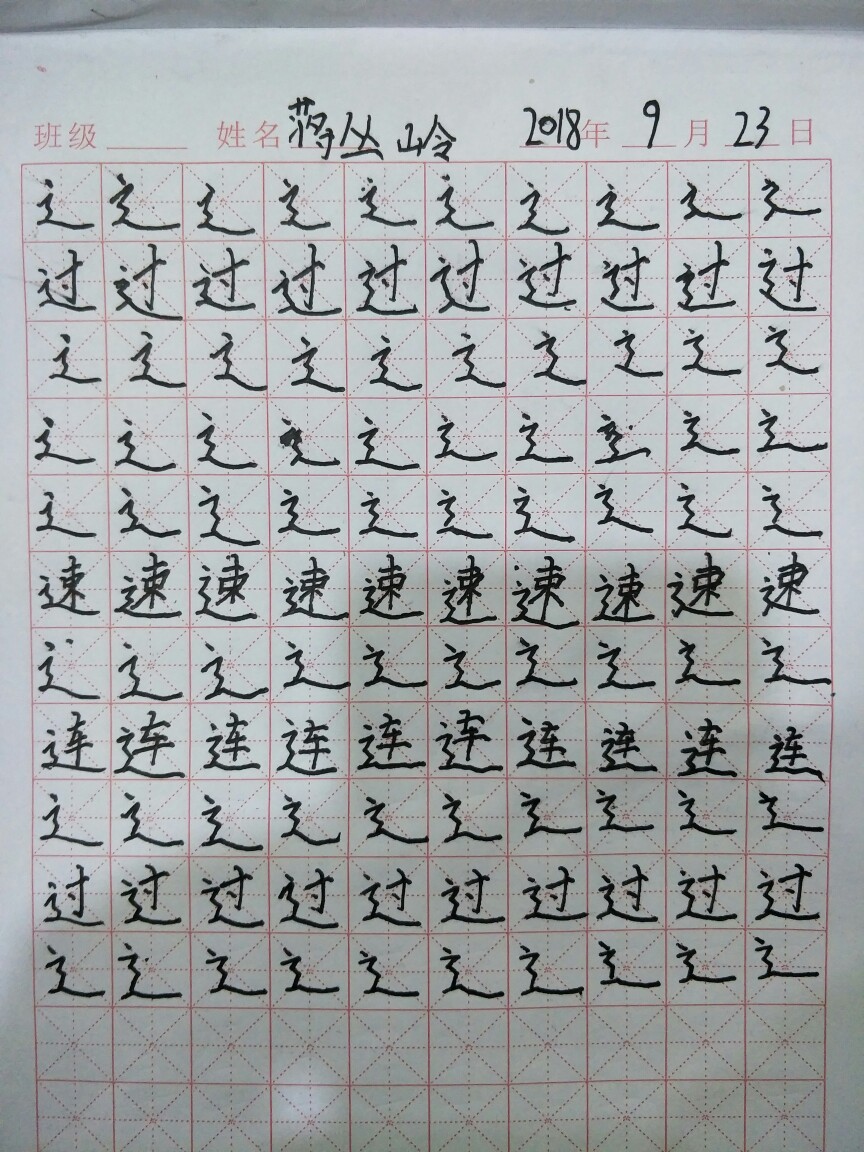 班级 姓名 蒋丛岭 2018年 9月 23日
辶辶辶辶辶辶辶辶辶辶
过过过过过过过过过过
辶辶辶辶辶辶辶辶辶辶
辶辶辶辶辶辶辶辶辶辶
辶辶辶辶辶辶辶辶辶辶
速速速速速速速速速速
辶辶辶辶辶辶辶辶辶辶
连连连连连连连连连连
辶辶辶辶辶辶辶辶辶辶
过过过过过过过过过过
辶辶辶辶辶辶辶辶辶辶